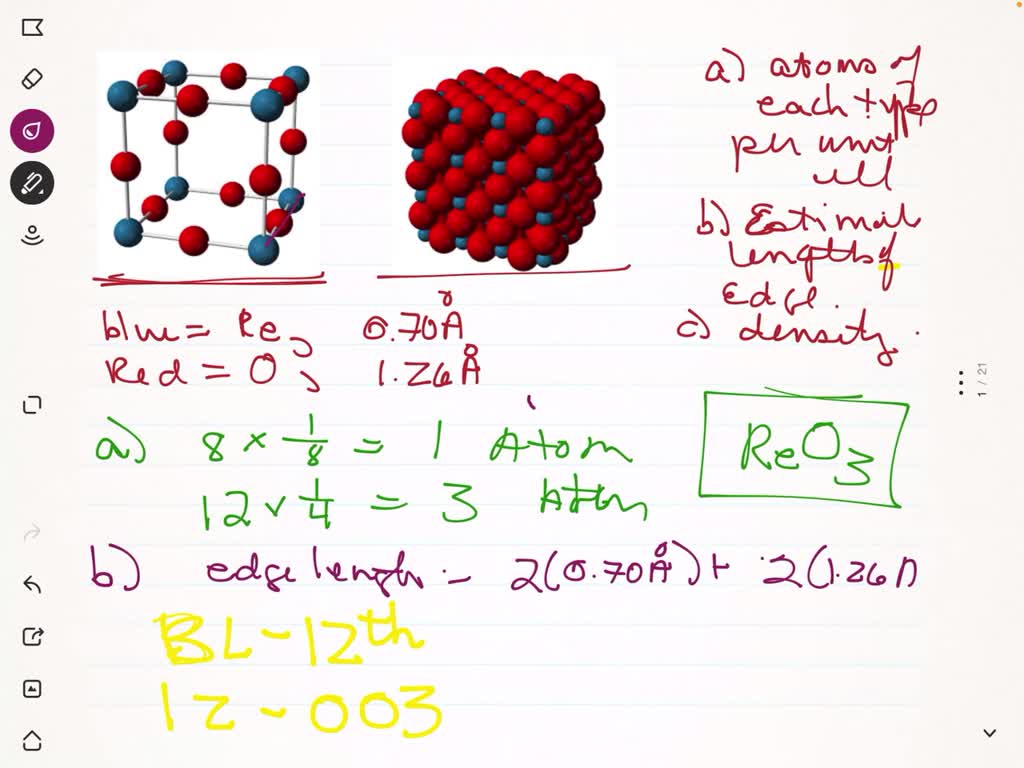 a) atoms of
each type
per unit
cell
b) Estimate
lengths of
Edge.
c) density.
blue = Re, 0.70Å
Red = O, 1.26Å
a) 8 × 1/8 = 1 Atom
12 × 1/4 = 3 Atom
ReO3
b) edge length = 2(0.70Å) + 2(1.26
BL-12th
12-003
1 / 21